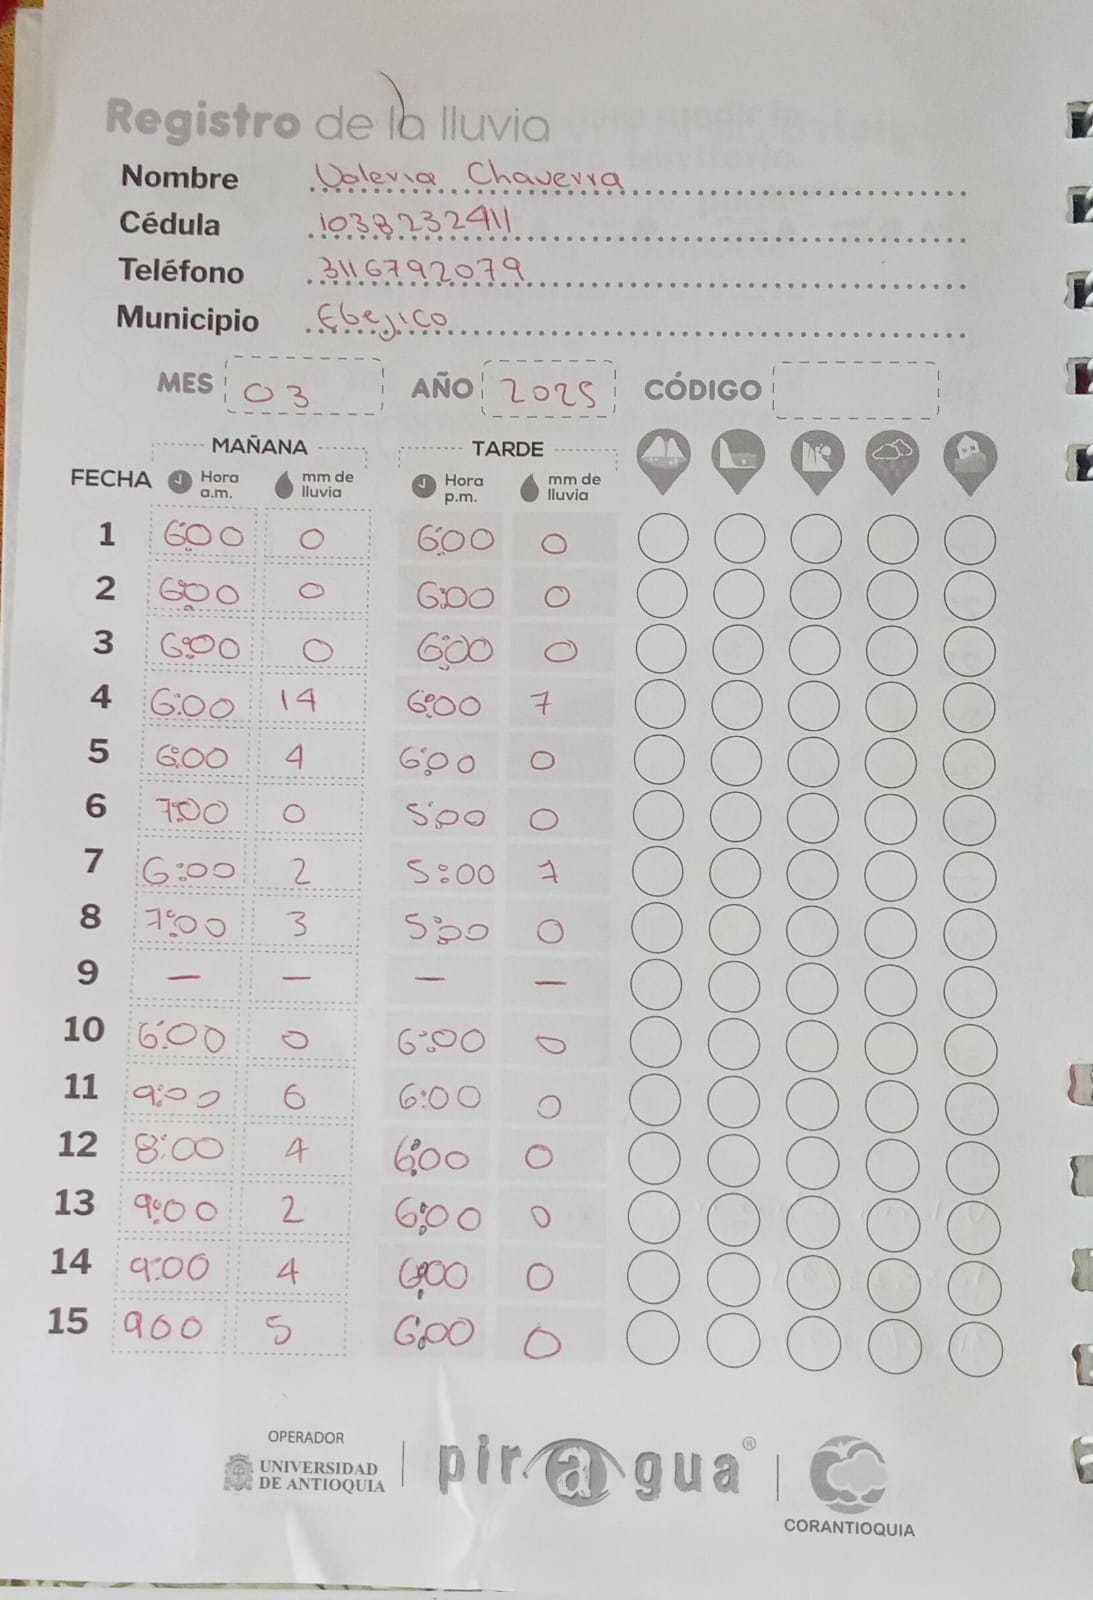 Registro de la lluvia
Nombre Valeria Chaverra
Cédula 1038232411
Teléfono 3116792079
Municipio Ebejico
MES 03 AÑO 2025 CÓDIGO
MAÑANA TARDE
FECHA Hora a.m. mm de lluvia Hora p.m. mm de lluvia
1 6:00 0 6:00 0
2 6:00 0 6:00 0
3 6:00 0 6:00 0
4 6:00 14 6:00 7
5 6:00 4 6:00 0
6 7:00 0 5:00 0
7 6:00 2 5:00 7
8 7:00 3 5:00 0
9 — — — —
10 6:00 0 6:00 0
11 9:00 6 6:00 0
12 8:00 4 6:00 0
13 9:00 2 6:00 0
14 9:00 4 6:00 0
15 900 5 6:00 0
OPERADOR
UNIVERSIDAD
DE ANTIOQUIA
piragua®
CORANTIOQUIA